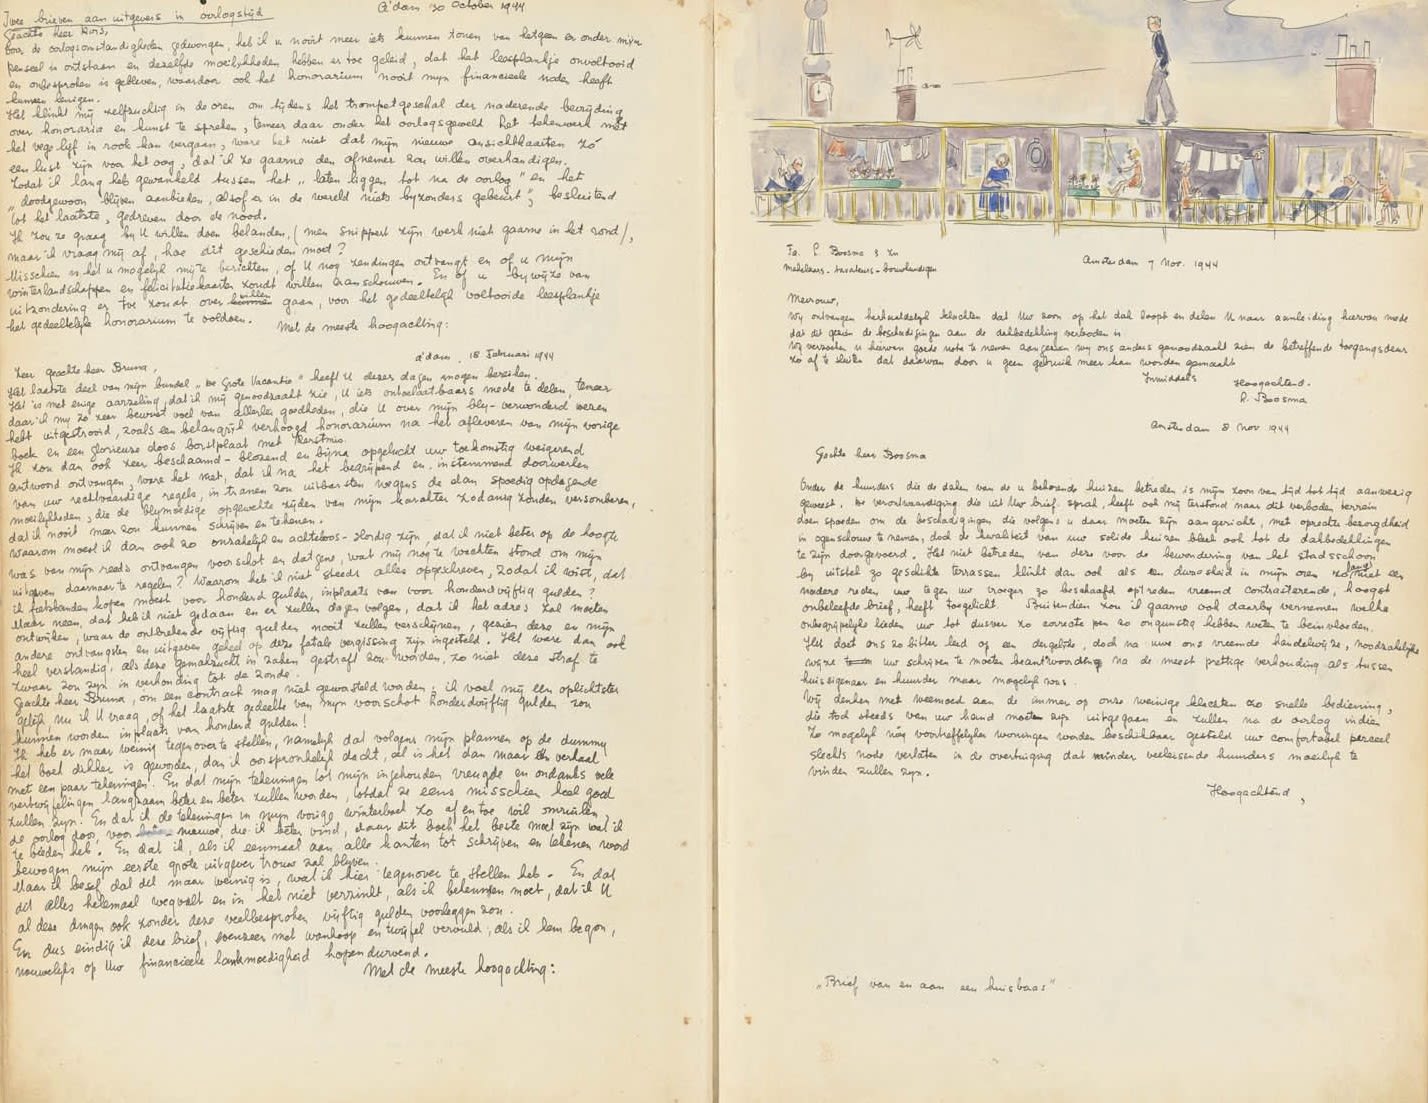 Twee brieven aan uitgevers in oorlogstijd
A'dam 30 October 1944
Geachte heer Kuis,
Door de oorlogsomstandigheden gedwongen, heb ik u nooit meer iets kunnen tonen van hetgeen er onder mijn
penseel is ontstaan en dezelfde moeilijkheden hebben er toe geleid, dat het leesplankje onvoltooid
en onbesproken is gebleven, waardoor ook het honorarium nooit mijn financieele noden heeft
kunnen lenigen.
Het klinkt mij zelfzuchtig in de oren om tijdens het trompetgeschal der naderende bevrijding
over honoraria en kunst te spreken, temeer daar onder het oorlogsgeweld het tekenwerk met
het vege lijf in rook kan vergaan, ware het niet dat mijn nieuwe ansichtkaarten zó
een lust zijn voor het oog, dat ik ze gaarne den afnemer zou willen overhandigen.
Zodat ik lang heb gewankeld tussen het „laten liggen tot na de oorlog" en het
„doodgewoon blijven aanbieden, alsof er in de wereld niets byzonders gebeurt", besluitend
tot het laatste, gedreven door de nood.
Ik zou ze graag bij U willen doen belanden, (men snippert zijn werk niet gaarne in het rond),
maar ik vraag mij af, hoe dit geschieden moet?
Misschien is het u mogelijk mij te berichten, of U nog zendingen ontvangt en of u mijn
winterlandschappen en felicitatiekaarten zoudt willen aanschouwen. En of u bywijze van
uitzondering er toe zoudt over willen gaan, voor het gedeeltelijk voltooide leesplankje
het gedeeltelijke honorarium te voldoen.
Met de meeste hoogachting:
A'dam, 18 Februari 1944
Zeer geachte heer Bruna,
Het laatste deel van mijn bundel „De Grote Vacantie" heeft U dezer dagen mogen bereiken.
Het is met enige aarzeling, dat ik mij genoodzaakt zie, U iets ontoelaatbaars mede te delen, temeer
daar ik mij zo zeer bewust voel van allerlei goedheden, die U over mijn bly-verwonderd wezen
hebt uitgestrooid, zoals een belangrijk verhoogd honorarium na het afleveren van mijn vorige
boek en een glorieuze doos borstplaat met Kerstmis.
Ik zou dan ook zeer beschaamd-blozend en bijna opgelucht uw toekomstig weigerend
antwoord ontvangen, ware het niet, dat ik na het begrijpend en instemmend doorwerken
van uw rechtvaardige regels, in tranen zou uitbarsten wegens de dan spoedig opdagende
moeilijkheden, die de blymoedige opgewekte zijden van mijn karakter zodanig zouden versomberen,
dat ik nooit meer zou kunnen schrijven en tekenen.
Waarom moest ik dan ook zo onzakelijk en achteloos-slordig zijn, dat ik niet beter op de hoogte
was van mijn reeds ontvangen voorschot en datgene, wat mij nog te wachten stond om mijn
uitgaven daarnaar te regelen? Waarom heb ik niet steeds alles opgeschreven, zodat ik wist, dat
ik fietsbanden kopen moest voor honderd gulden, inplaats van voor honderdvijftig gulden?
Maar neen, dat heb ik niet gedaan en er zullen dagen volgen, dat ik het adres zal moeten
ontwijken, waar de ontbrekende vijftig gulden nooit zullen verschijnen, gezien deze en mijn
andere ontvangsten en uitgaven geheel op deze fatale vergissing zijn ingesteld. Het ware dan ook
heel verstandig, als deze gemakzucht in zaken gestraft zou worden, zo niet deze straf te
zwaar zou zijn in verhouding tot de zonde.
Geachte heer Bruna, om een contract mag niet geworsteld worden; ik voel mij een oplichtster
gelijk, nu ik U vraag, of het laatste gedeelte van mijn voorschot honderdvijftig gulden zou
kunnen worden inplaats van honderd gulden!
Ik heb er maar weinig tegenover te stellen, namelijk dat volgens mijn plannen op de dummy
het boek dikker is geworden, dan ik oorspronkelijk dacht, al is het dan maar één verhaal
met een paar tekeningen! En dat mijn tekeningen tot mijn ingehouden vreugde en ondanks vele
vertwijfelingen langzaam beter en beter zullen worden, totdat ze eens misschien heel goed
zullen zijn! En dat ik de tekeningen in mijn vorige winterboek zo af en toe wil omruilen,
de oorlog door, voor nieuwe, die ik beter vind, daar dit boek het beste moet zijn wat ik
te bieden heb. En dat ik, als ik eenmaal aan alle kanten tot schrijven en tekenen word
bewogen mijn eerste grote uitgever trouw zal blijven.
Maar ik besef, dat dit maar weinig is, wat ik hier tegenover te stellen heb. En dat
dit alles helemaal wegvalt en in het niet verzinkt, als ik bekennen moet, dat ik U
al deze dingen ook zonder deze veelbesproken vijftig gulden voorleggen zou.
En dus eindig ik deze brief, evenzeer met wanhoop en twijfel vervuld, als ik hem begon,
nauwelijks op Uw financieele lankmoedigheid hopen durvend.
Met de meeste hoogachting:
Fa. L. Boosma & Zn
Makelaars-taxateurs-bouwkundigen
Amsterdam 7 Nov. 1944
Mevrouw,
Wij ontvangen herhaaldelijk klachten dat Uw zoon op het dak loopt en delen U naar aanleiding hiervan mede
dat dit gezien de beschadigingen aan de dakbedekking verboden is.
Wij verzoeken u hiervan goede nota te nemen aangezien wij ons anders genoodzaakt zien de betreffende toegangsdeur
zo af te sluiten dat daarvan door u geen gebruik meer kan worden gemaakt
Inmiddels
Hoogachtend.
L. Boosma
Amsterdam 8 Nov 1944
Geachte heer Boosma
Onder de huurders die de daken van de u behorende huizen betreden is mijn zoon van tijd tot tijd aanwezig
geweest. De verontwaardiging die uit Uw brief sprak, heeft ook mij terstond naar dit verboden terrein
doen spoeden om de beschadigingen die volgens u daar moeten zijn aangericht, met oprechte bezorgdheid
in ogenschouw te nemen, doch de kwaliteit van uw solide huizen bleek ook tot de dakbedekkingen
te zijn doorgevoerd. Het niet betreden van deze voor de bewondering van het stadsschoon
bij uitstek zo geschikte terrassen klinkt dan ook als een dwaasheid in mijn oren zolang niet een
nadere reden uw tegen uw vroeger zo beschaafd optreden vreemd contrasterende, hoogst
onbeleefde brief, heeft toegelicht. Buitendien zou ik gaarne ook daarbij vernemen welke
onbegrijpelijke lieden uw tot dusver zo correcte pen zo ongunstig hebben weten te beinvloeden.
Het doet ons zo bitter leed op een dergelijke, doch na uwe ons vreemde handelwijze, noodzakelijke
wijze uw schrijven te moeten beantwoorden na de meest prettige verhouding als tussen
huiseigenaar en huurder maar mogelijk was.
Wij denken met weemoed aan de immer op onze weinige klachten zo snelle bediening,
die tod steeds van uw hand moeten zijn uitgegaan en zullen na de oorlog indien
zo mogelijk nog voortreffelijker woningen worden beschikbaar gesteld uw comfortabel perceel
slechts node verlaten in de overtuiging dat minder veeleisende huurders moeilijk te
vinden zullen zijn.
Hoogachtend,
„Brief van en aan een huisbaas"